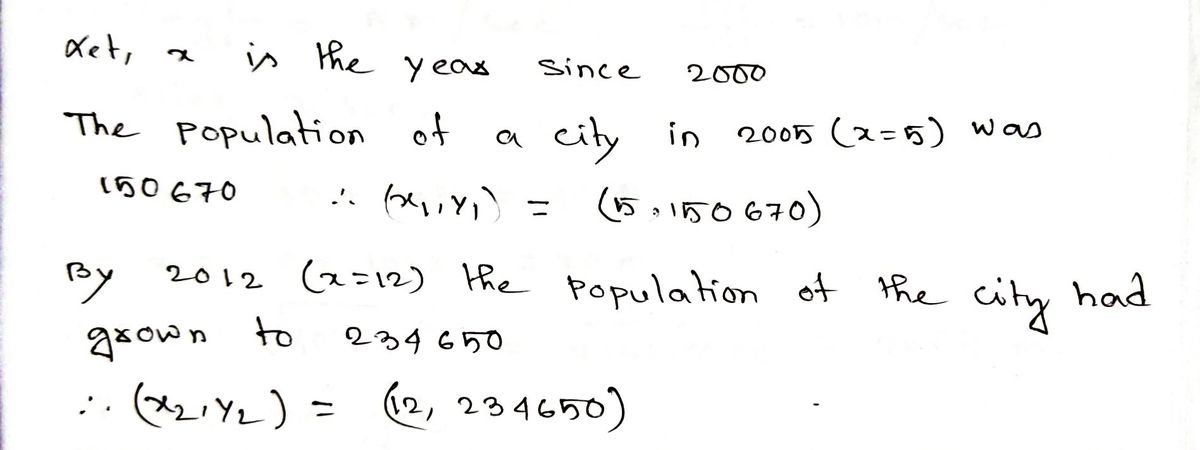 Let, x is the year since 2000
The population of a city in 2005 (x=5) was
150670 ∴ (x₁,y₁) = (5, 150670)
By 2012 (x=12) the population of the city had
grown to 234650
∴ (x₂,y₂) = (12, 234650)